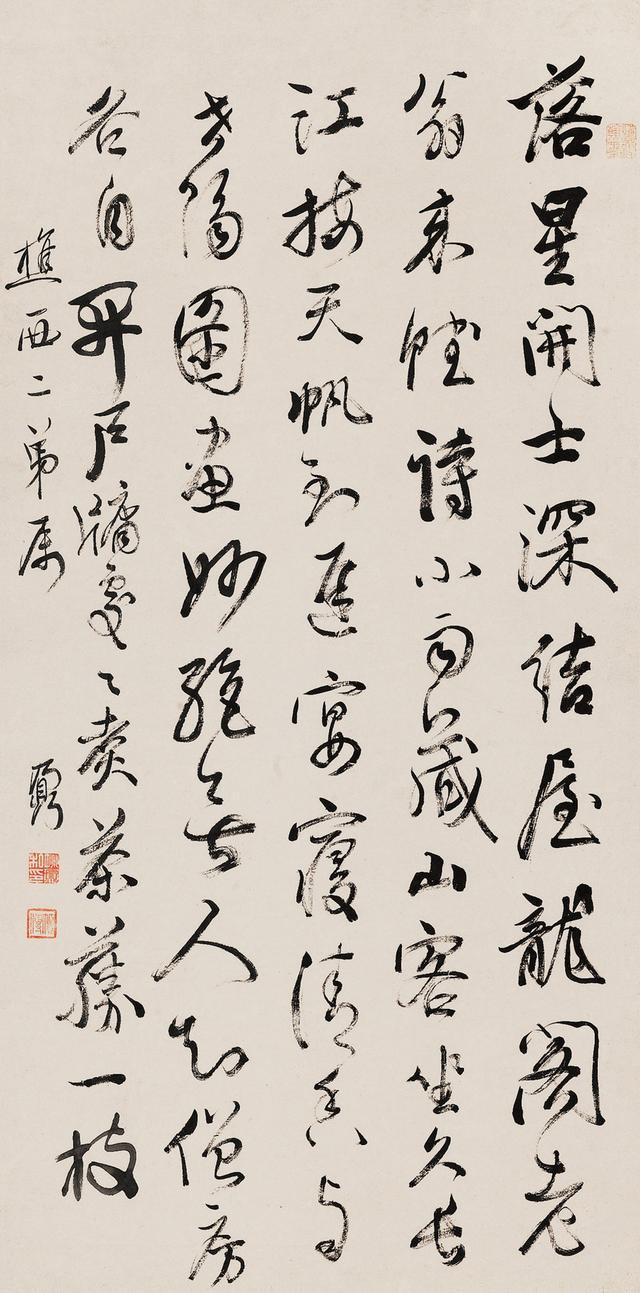 落星開士深結屋龍閣老
翁來賦詩小雨藏山客坐久長
江接天帆到遲宴寢清香與
世隔圖畫妙絕無人知僧房
各自開戶牖處〻煑茶藤一枝
樵西二弟屬